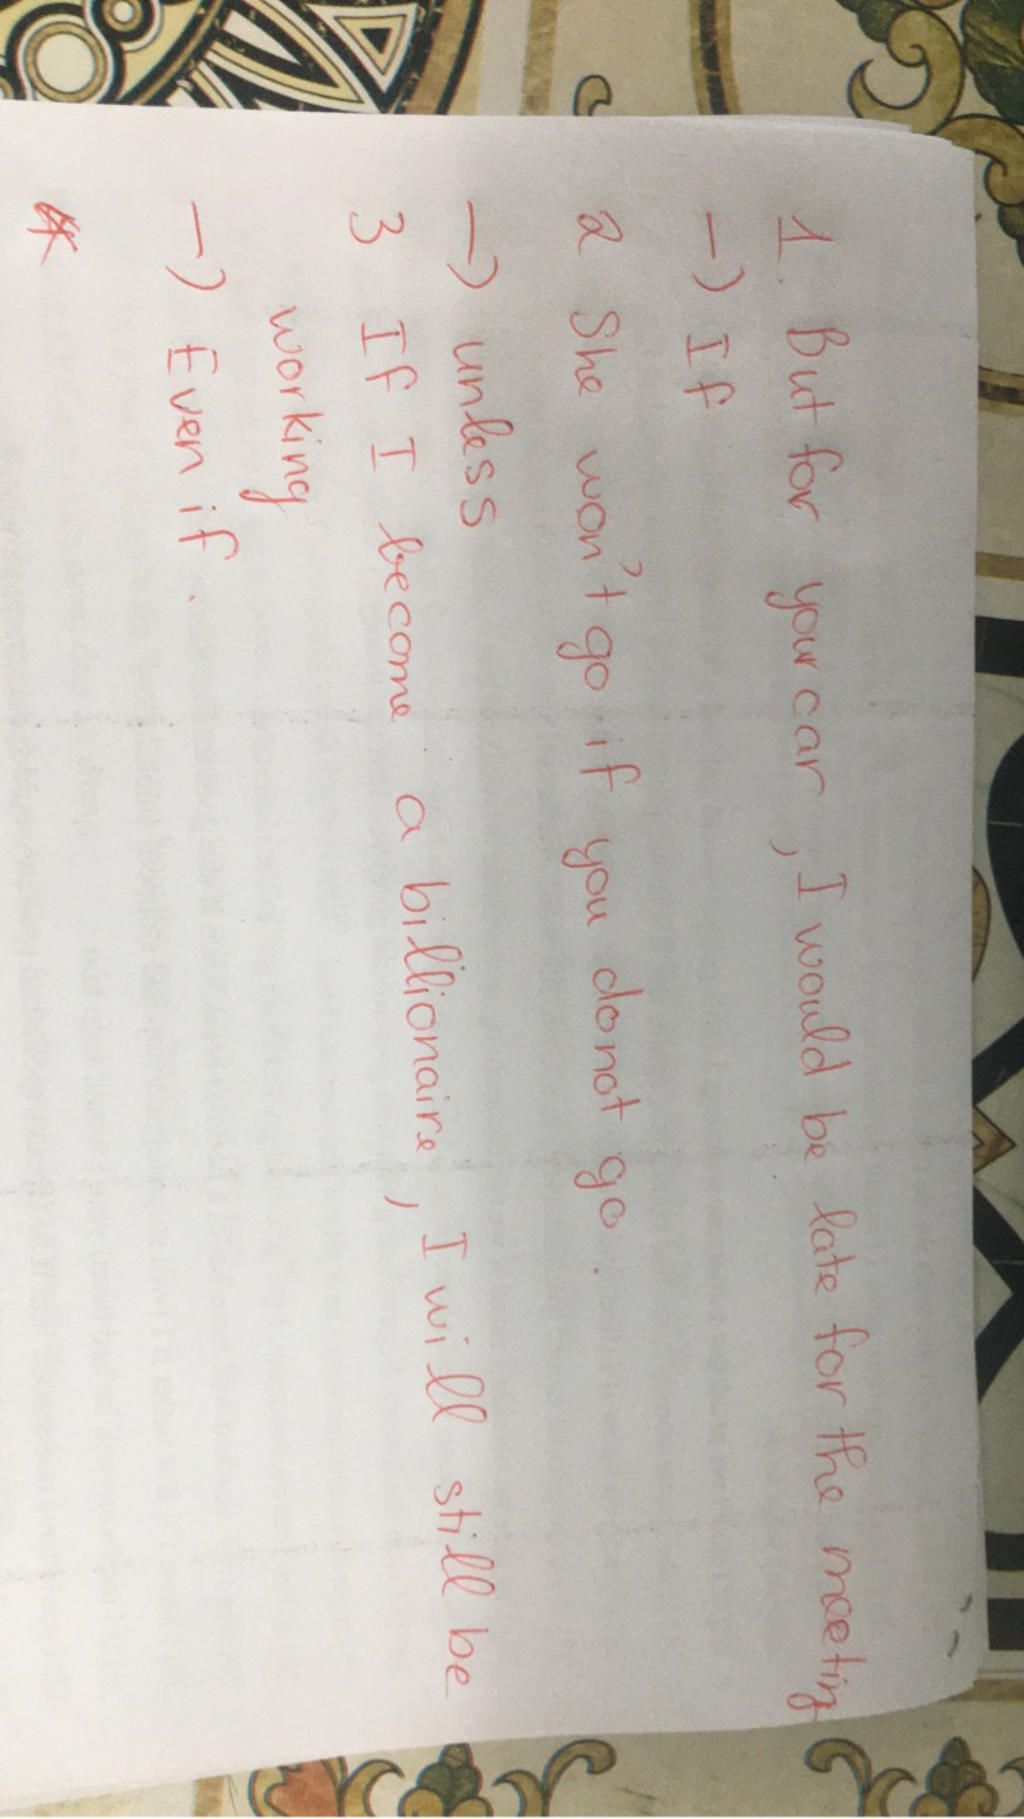 1. But for your car, I would be late for the meeting
→ If
2 She won't go if you do not go.
→ unless
3 If I become a billionaire, I will still be
working
→ Even if.
*